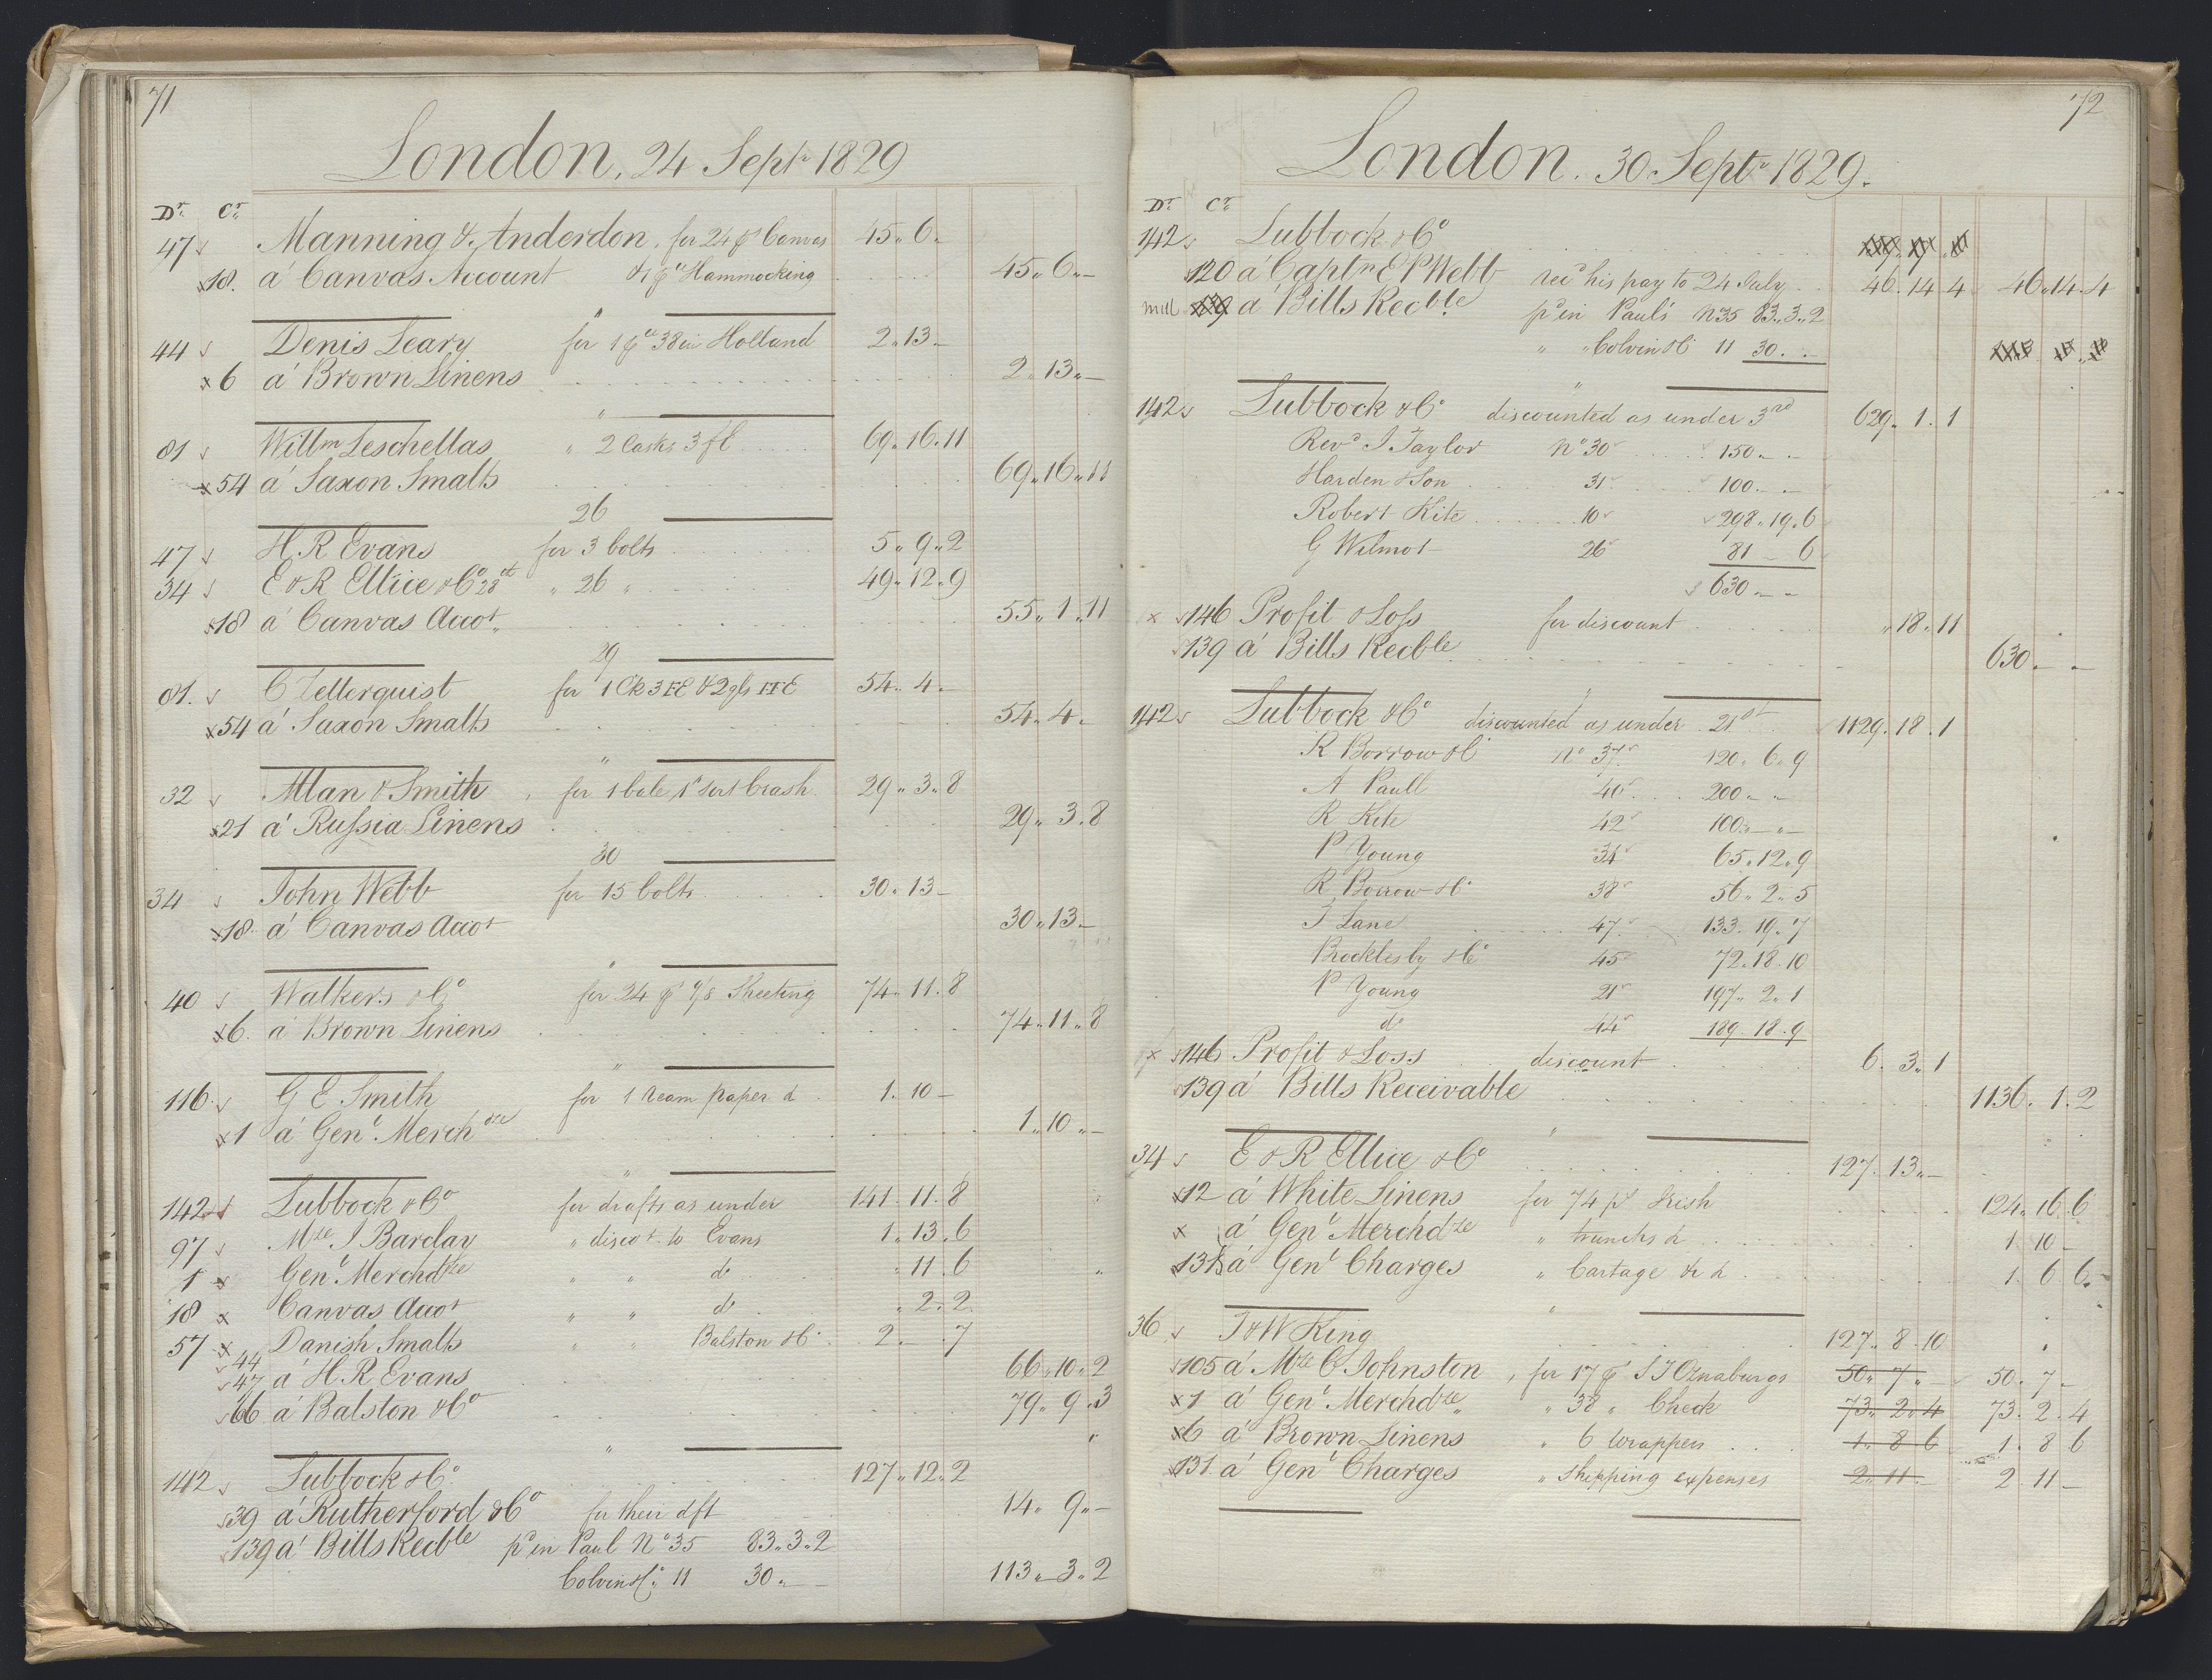 71
London, 24 Septr 1829
Dr. Cr.
47 Manning & Anderdon, for 24 ps Canvas 45 „ 6 „
18. a' Canvas Account & 1 pce Hammocking 45 „ 6 „ –
„
44 Denis Leary for 1 pce 38 in Holland 2 „ 13 –
6 a' Brown Linens 2 „ 13 „ –
„
81 Willm Leschellas „ 2 Casks 3 fE 69 „ 16 „ 11
54 a' Saxon Smalts 69 „ 16 „ 11
26
47 H R Evans for 3 bolts 5 „ 9 „ 2
34 E & R Ellice & Co 28th „ 26 „ 49 „ 12 „ 9
18 a' Canvas Accot „ 55 „ 1 „ 11
29
81. C Zetterquist for 1 Ck 3 FE & 2 FFE 54 „ 4 –
54 a' Saxon Smalts 54 „ 4 „
„
32 Allan & Smith for 1 bale 1st sort Crash 29 „ 3 „ 8
21 a' Russia Linens 29 „ 3 „ 8
30
34 John Webb for 15 bolts 30 „ 13 –
18 a' Canvas Accot 30 „ 13 –
„
40 Walkers & Co for 24 ps 9/8 Sheeting 74 „ 11 „ 8
6. a' Brown Linens 74 „ 11 „ 8
„
116 G E Smith for 1 ream paper & 1 „ 10 –
1 a' Genl Merchdze 1 „ 10 „ –
„
142 Lubbock & Co for drafts as under 141 „ 11 „ 8
97 Mze J Barclay „ discot to Evans 1 „ 13 „ 6
1 Genl Merchdze „ „ do „ 11 „ 6
18 Canvas Accot „ „ do „ 2 „ 2
57 Danish Smalts „ „ Balston & Co 2 „ – „ 7
44
47 a' H R Evans 66 „ 10 „ 2
66 a' Balston & Co 79 „ 9 „ 3
„
142 Lubbock & Co 127 „ 12 „ 2
39 a' Rutherford & Co for their dft 14 „ 9 „ –
139 a' Bills Recble pd in Paul No 35 83 „ 3 „ 2
Colvin & Co 11 30 „ – 113 „ 3 „ 2
72
London. 30 Septr 1829.
Dr. Cr.
142 Lubbock & Co
120 a' Captn E P Webb recd his pay to 24 July 46 . 14 . 4 46 „ 14 . 4
139 a' Bills Recble pd in Paul's No 35 83 „ 3 „ 2
„ „ Colvin & Co 11 30 . –
„
142 Lubbock & Co discounted as under 3rd 629 „ 1 . 1
Revd J Taylor No 30 150 – –
Harden & Son 31 100 – –
Robert Kite 10 298 „ 19 „ 6
G Wilmot 26 81 – 6
630 – –
146 Profit & Loss for discount „ 18 „ 11
139 a' Bills Recble 630 – –
„
142 Lubbock & Co discounted as under 21st 1129 . 18 . 1
R Borrow & Co No 37 120 „ 6 „ 9
A Paull 40 200 – –
R Kite 42 100 – –
P Young 34 65 „ 12 „ 9
R Borrow & Co 38 56 „ 2 „ 5
J Lane 47 133 „ 19 „ 7
Brocklesby & Co 45 72 „ 18 „ 10
P Young 21 197 „ 2 „ 1
do 44 189 „ 18 „ 9
146 Profit & Loss discount 6 . 3 „ 1
139 a' Bills Receivable 1136 . 1 . 2
„
34 E & R Ellice & Co 127 . 13 „ –
12 a' White Linens for 74 ps Irish 124 „ 16 „ 6
a' Genl Merchdze „ trunks & 1 10 –
131 a' Genl Charges „ Cartage &c & 1 . 6 6
„
36 J & W King 127 „ 8 . 10
105 a' Mze C Johnston , for 17 ps S J Oznaburgs 50 „ 7 „ 50 . 7 –
1 a' Genl Merchdze „ „ 38 „ Check 73 „ 2 „ 4 73 . 2 . 4
6 a' Brown Linens „ 6 wrappers 1 „ 8 6 1 „ 8 6
131 a' Genl Charges „ Shipping expenses 2 „ 11 – 2 „ 11 –